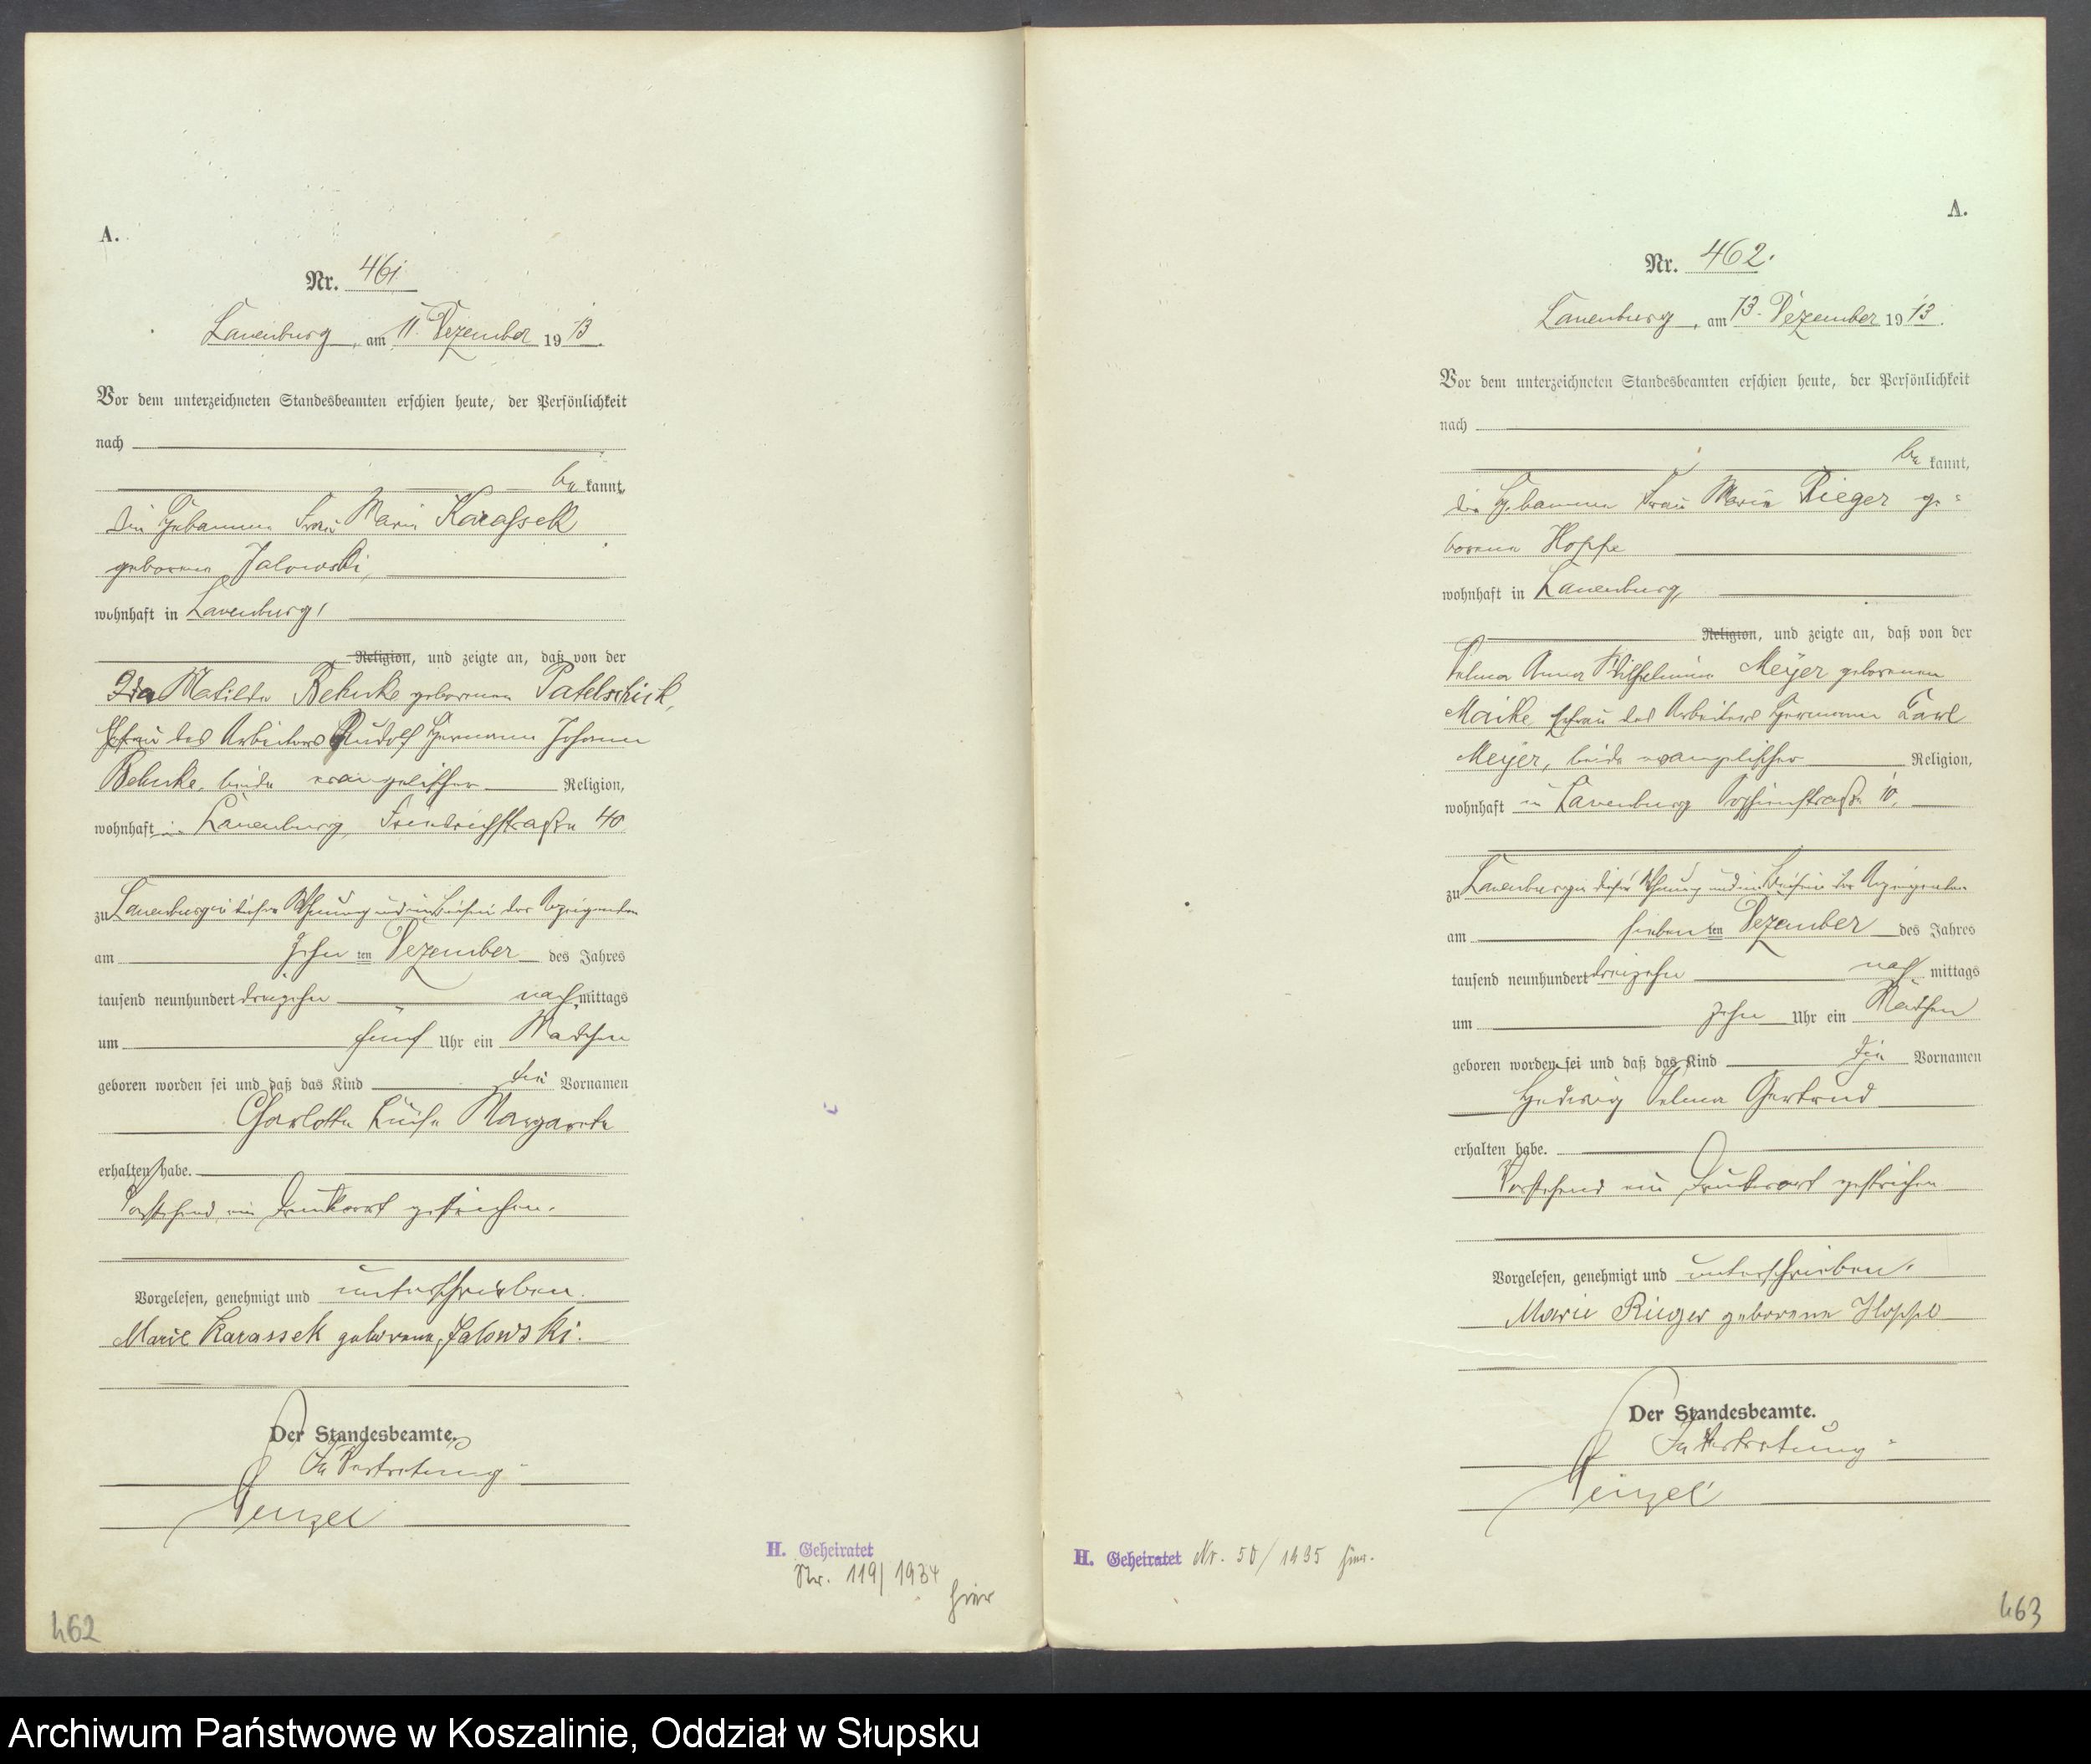 A.
Nr. 461
Lauenburg, am 11. Dezember 1913.
Vor dem unterzeichneten Standesbeamten erschien heute, der Persönlichkeit
nach
be kannt,
die Hebamme Frau Marie Karassek
geborene Jalowski,
wohnhaft in Lauenburg,
Religion, und zeigte an, daß von der
Ida Matilde Behnke geborenen
Ehefrau des Arbeiters Rudolf Hermann Johann
Behnke, beide evangelischer Religion,
wohnhaft in Lauenburg, Friedrichstraße 40
zu Lauenburg in dieser Wohnung und in Beisein der Anzeigenden
am zehn ten Dezember des Jahres
tausend neunhundert dreizehn nach mittags
um fünf Uhr ein Mädchen
geboren worden sei und daß das Kind die Vornamen
Charlotte Luise Margarete
erhalten habe.
Vorstehend ein Druckwort gestrichen.
Vorgelesen, genehmigt und unterschrieben.
Marie Karassek geborene Jalowski.
Der Standesbeamte.
In Vertretung
H. Geheiratet
Nr. 119/1934
hier
462
A.
Nr. 462.
Lauenburg, am 13. Dezember 1913.
Vor dem unterzeichneten Standesbeamten erschien heute, der Persönlichkeit
nach
be kannt,
die Hebamme Frau Marie Rieger ge=
borene Hoppe
wohnhaft in Lauenburg,
Religion, und zeigte an, daß von der
Selma Anna Wilhelmine Meyer geborenen
Maike, Ehefrau des Arbeiters Hermann Carl
Meyer, beide evangelischer Religion,
wohnhaft in Lauenburg Sophienstraße 10,
zu Lauenburg in dieser Wohnung und in Beisein der Anzeigenden
am sieben ten Dezember des Jahres
tausend neunhundert dreizehn nach mittags
um zehn Uhr ein Mädchen
geboren worden sei und daß das Kind die Vornamen
Hedwig Selma Gertrud
erhalten habe.
Vorstehend ein Druckwort gestrichen
Vorgelesen, genehmigt und unterschrieben.
Marie Rieger geborene Hoppe
Der Standesbeamte.
In Vertretung
H. Geheiratet Nr. 50/1935 hier.
463
Archiwum Państwowe w Koszalinie, Oddział w Słupsku